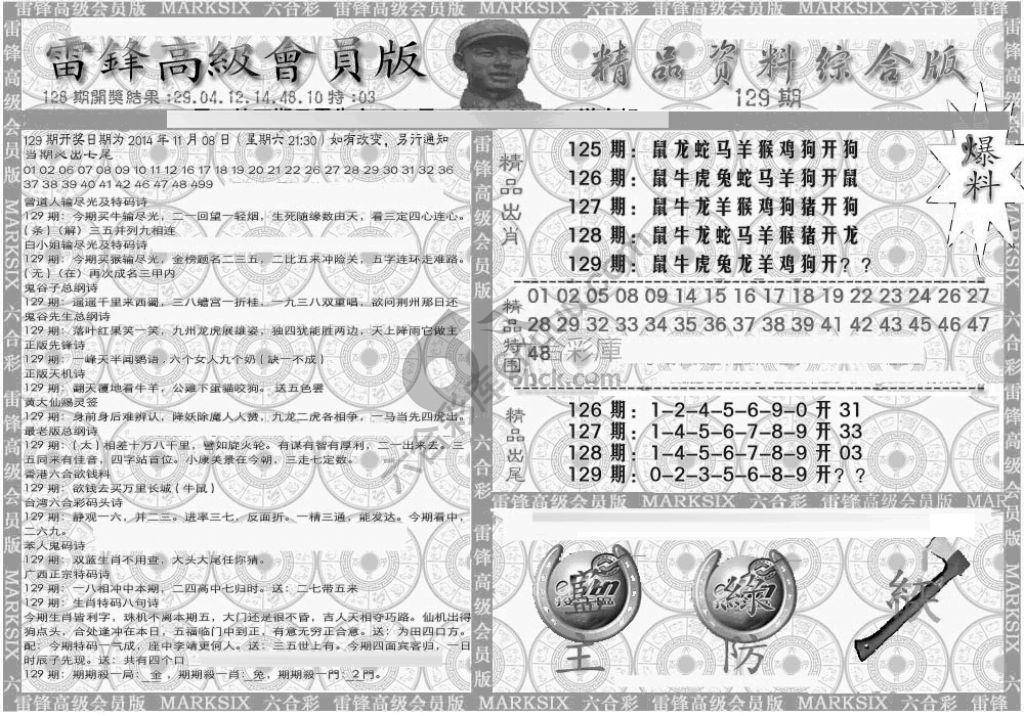 雷锋高级会员版 MARKSIX 六合彩 雷锋高级会员版 MARKSIX 六合彩 雷锋高级会员版 MARKSIX 六合彩 雷锋
雷鋒高級會員版
精品资料综合版
128期開獎結果:29.04.12.14.48.10特:03
129期
129期开奖日期为2014年11月08日(星期六21:30)如有改变,另行通知
01 02 06 07 08 09 10 11 12 16 17 18 19 20 21 22 26 27 28 29 30 31 32 36
37 38 39 40 41 42 46 47 48 499
曾道人输尽光及特码诗
129期:今期买牛输尽光,二一回望一轻烟,生死随缘数由天,看三定四心连心。
(条)(解)三五并列九相连
白小姐输尽光及特码诗
129期:今期买猴输尽光,金榜题名二三五,二比五来冲险关,五字连环走难路。
(无)(在)再次成名三甲内
鬼谷子总纲诗
129期:遥遥千里来西蜀,三八蟾宫一折桂,一九三八双重唱,欲问荆州那日还
鬼谷先生总纲诗
129期:落叶红果笑一笑,九州龙虎展雄姿,独四犹能胜两边,天上降雨它做主
正版先锋诗
129期:一峰天半闻鹦语,六个女人九个奶(缺一不成)
正版天机诗
129期:翻天覆地看牛羊,公鸡下蛋猫咬狗。送五色雲
黄大仙赐灵签
129期:身前身后难辨认,降妖除魔人人赞,九龙二虎各相争,一马当先四虎出。
最老版总纲诗
129期:(太)相差十万八千里,譬如旋火轮。有谋有智有厚利,二一出来去。三
五同来有佳音,四字站首位。小康美景在今朝,三走七定数。
香港六合欲钱料
129期:欲钱去买万里长城(牛鼠)
台湾六合彩码头诗
129期:静观一六,并二三。进率三七,反面折。一精三通,能发达。今期看中,
二六九。
本人鬼码诗
129期:双蓝生肖不用查,大头大尾任你猜。
广西正宗特码诗
129期:一八相冲中本期,二四高中七归时。送:二七带五来
129期:生肖特码八句诗
今期生肖皆利字,珠机不离本期五,大门还是很不昏,吉人天相夺巧路。仙机出得
狗点头,合处逢冲在本日,五福临门中到正,有意无穷正合意。送:为田四口方。
配:今期特码一气成,座中李靖更何人。送:三五世上有。今期四面宾客归,一日
时辰子先现。送:共有四个口
129期:期期殺一局:金,期期殺一肖:兔,期期殺一門:2門。
精品出肖
125期:鼠龙蛇马羊猴鸡狗开狗
126期:鼠牛虎兔蛇马羊狗开鼠
127期:鼠牛龙羊猴鸡狗猪开狗
128期:鼠牛龙蛇马羊猴猪开龙
129期:鼠牛虎兔龙羊鸡狗开??
爆料
精品特围
01 02 05 08 09 14 15 16 17 18 19 22 23 24 26 27
28 29 32 33 34 35 36 37 38 39 41 42 43 45 46 47
48
精品出尾
126期:1-2-4-5-6-9-0开31
127期:1-4-5-6-7-8-9开33
128期:1-4-5-6-7-8-9开03
129期:0-2-3-5-6-8-9开??
雷锋高级会员版 MARKSIX 六合彩 雷锋高级会员版 MARK
主
防
雷锋高级会员版 MARKSIX 六合彩 雷锋高级会员版 MARKSIX 六合彩 雷锋高级会员版 MARKSIX 六合彩 雷锋